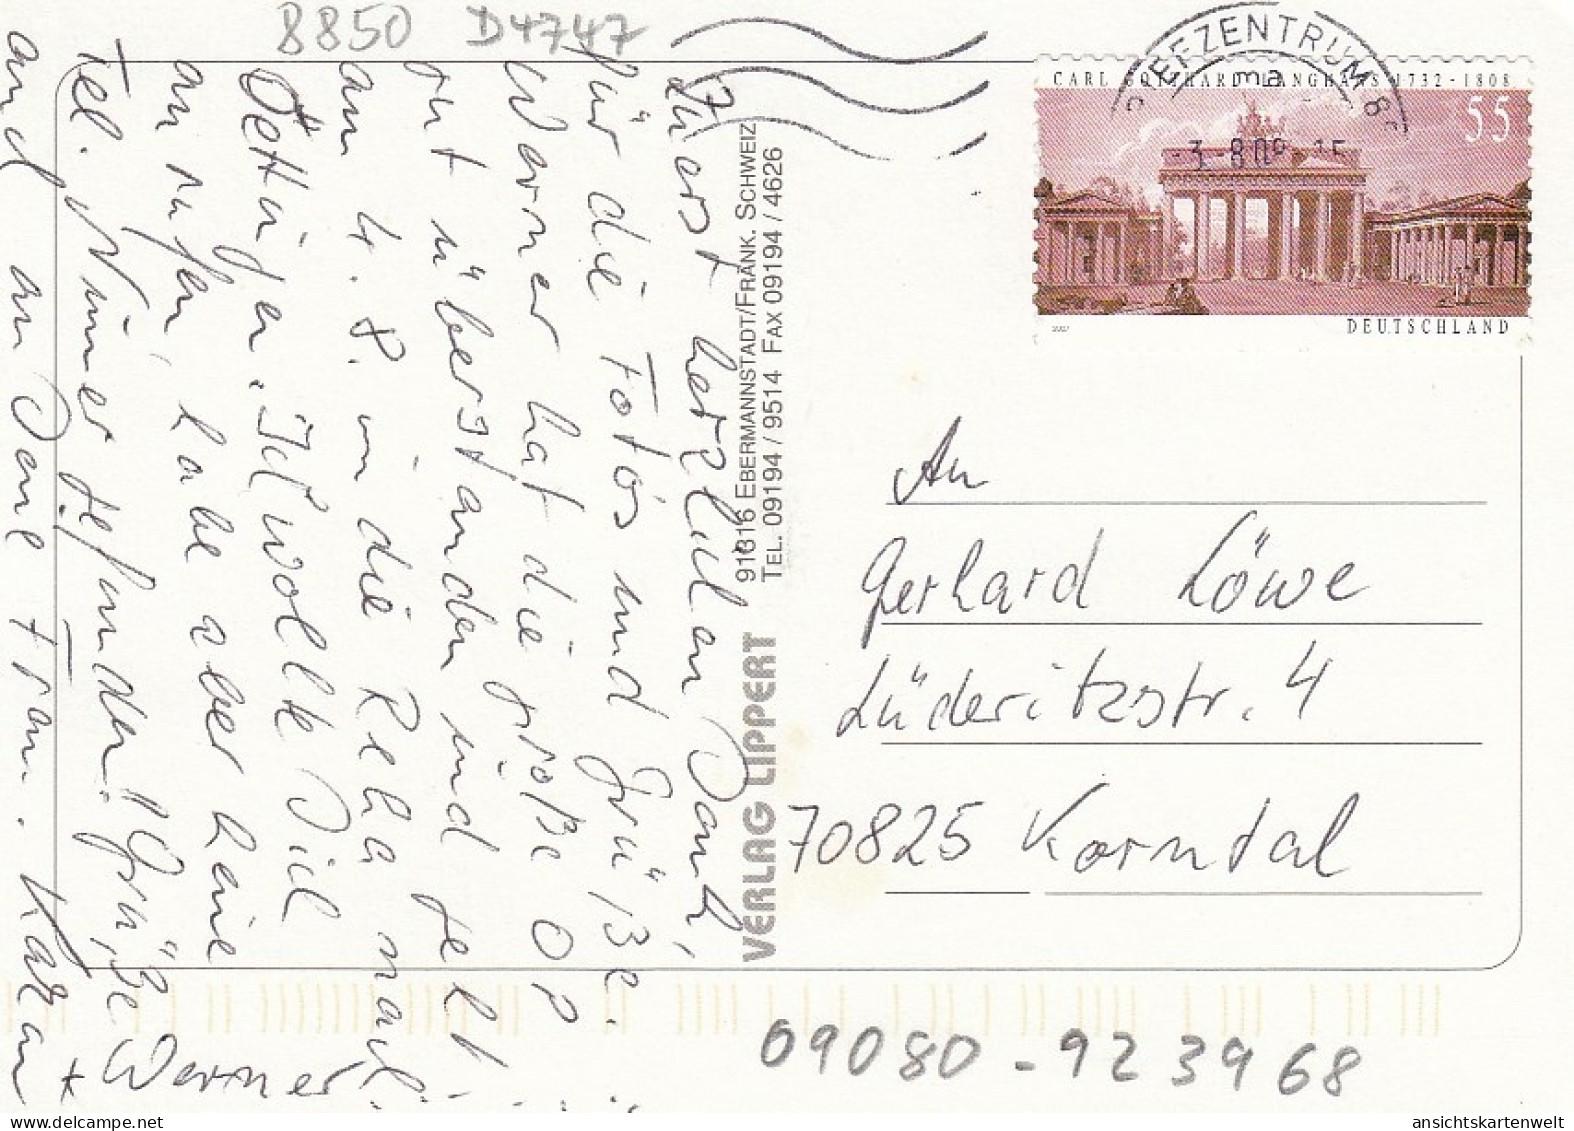 8850 D4747
BRIEFZENTRUM 8
ma
-3.-8.09-15
CARL GOTTHARD LANGHANS 1732-1808
55
2007
DEUTSCHLAND
Zuerst herzlichen Dank,
für die Fotos und Grüße.
Werner hat die große OP
gut überstanden und geht
am 4.8. in die Reha nach
Oettingen. Ich wollte Dich
anrufen, habe aber keine
Tel. Nummer gefunden. Grüße
auch an Deine Frau.
Werner
91316 EBERMANNSTADT/FRÄNK. SCHWEIZ
TEL. 09194 / 9514 FAX 09194 / 4626
VERLAG LIPPERT
An
Gerhard Löwe
Lüderitzstr. 4
70825 Korntal
09080-923968
ansichtskartenwelt